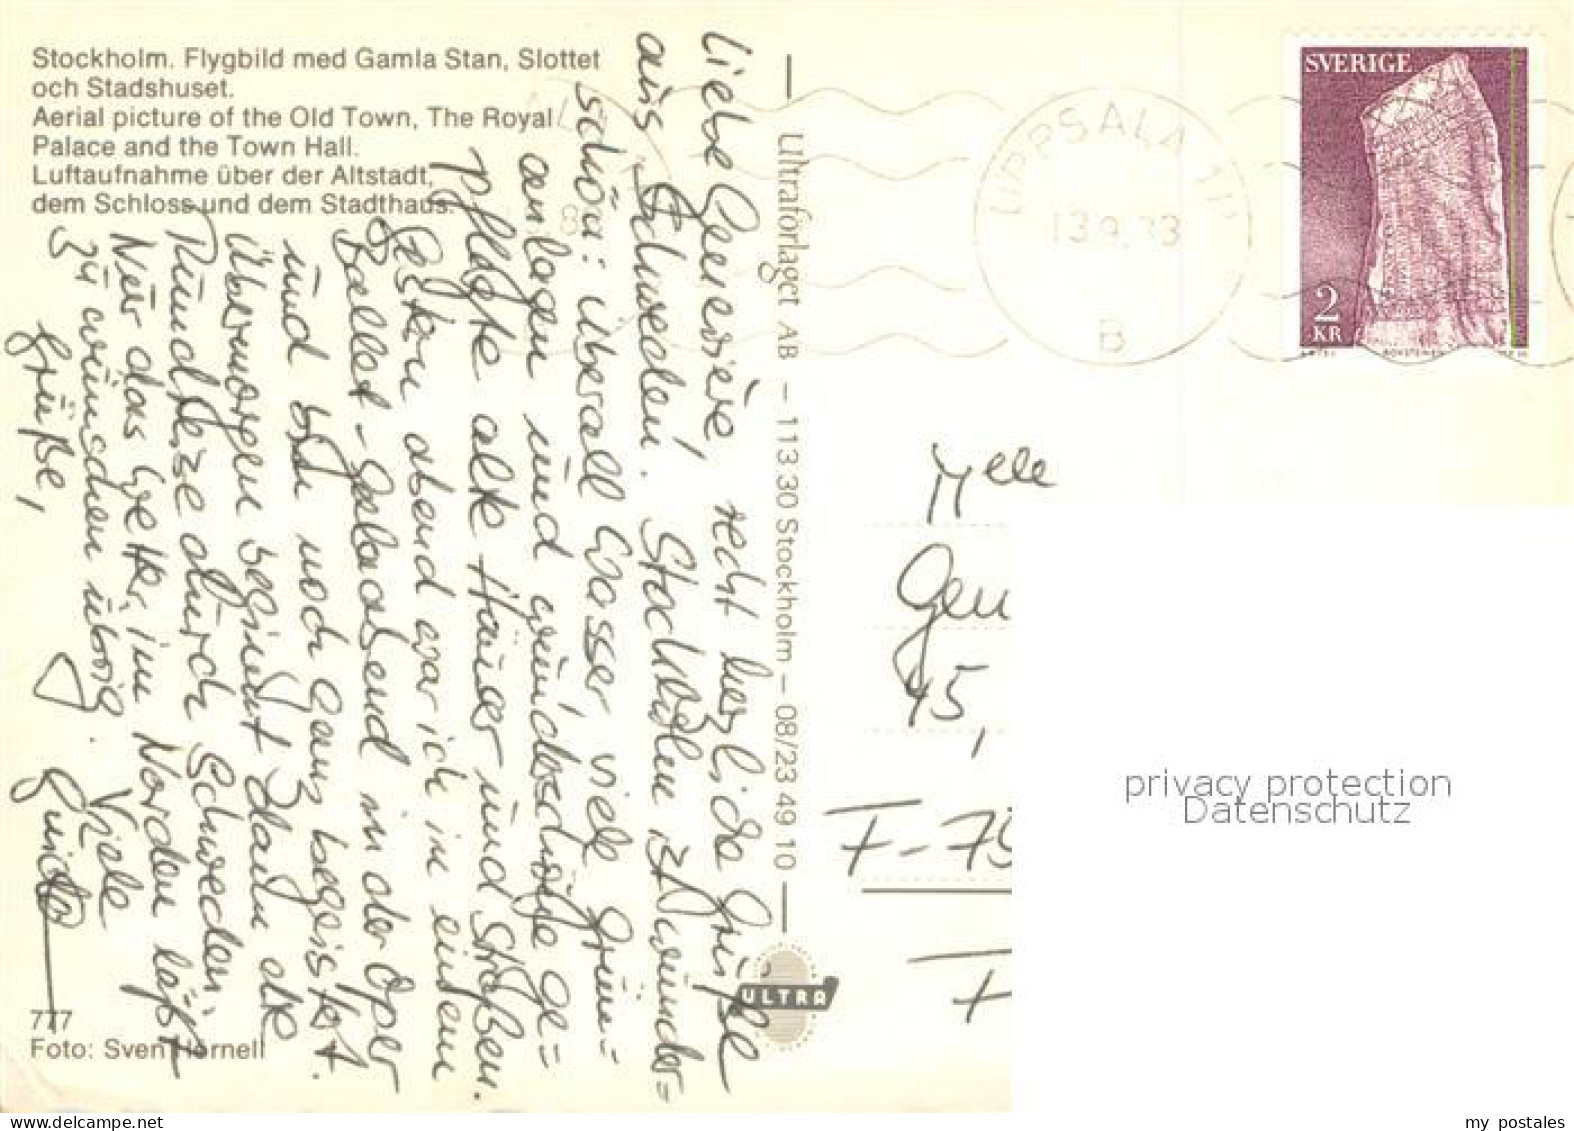 Stockholm. Flygbild med Gamla Stan, Slottet
och Stadshuset.
Aerial picture of the Old Town, The Royal
Palace and the Town Hall.
Luftaufnahme über der Altstadt,
dem Schloss und dem Stadthaus.
Liebe Geneviève, recht herzliche Grüße
aus Schweden! Stockholm ist wunder=
schön: überall Wasser, viele Grün=
anlagen und wunderschöne ge=
pflegte alte Häuser und Straßen.
Gestern abend war ich in einem
Ballet-Galaabend in der Oper
und bin noch ganz begeistert.
Übermorgen beginnt dann die
Rundreise durch Schweden.
Nur das Wetter im Norden läßt
zu wünschen übrig. Viele
Grüße,
Guido
777
Foto: Sven Hornell
Ultraförlaget AB - 113 30 Stockholm - 08/23 49 10
ULTRA
UPPSALA 1P
13.9.83
B
SVERIGE
2
KR
Melle
Gen
45,
F-75
F
privacy protection
Datenschutz
delcampe.net
my postales